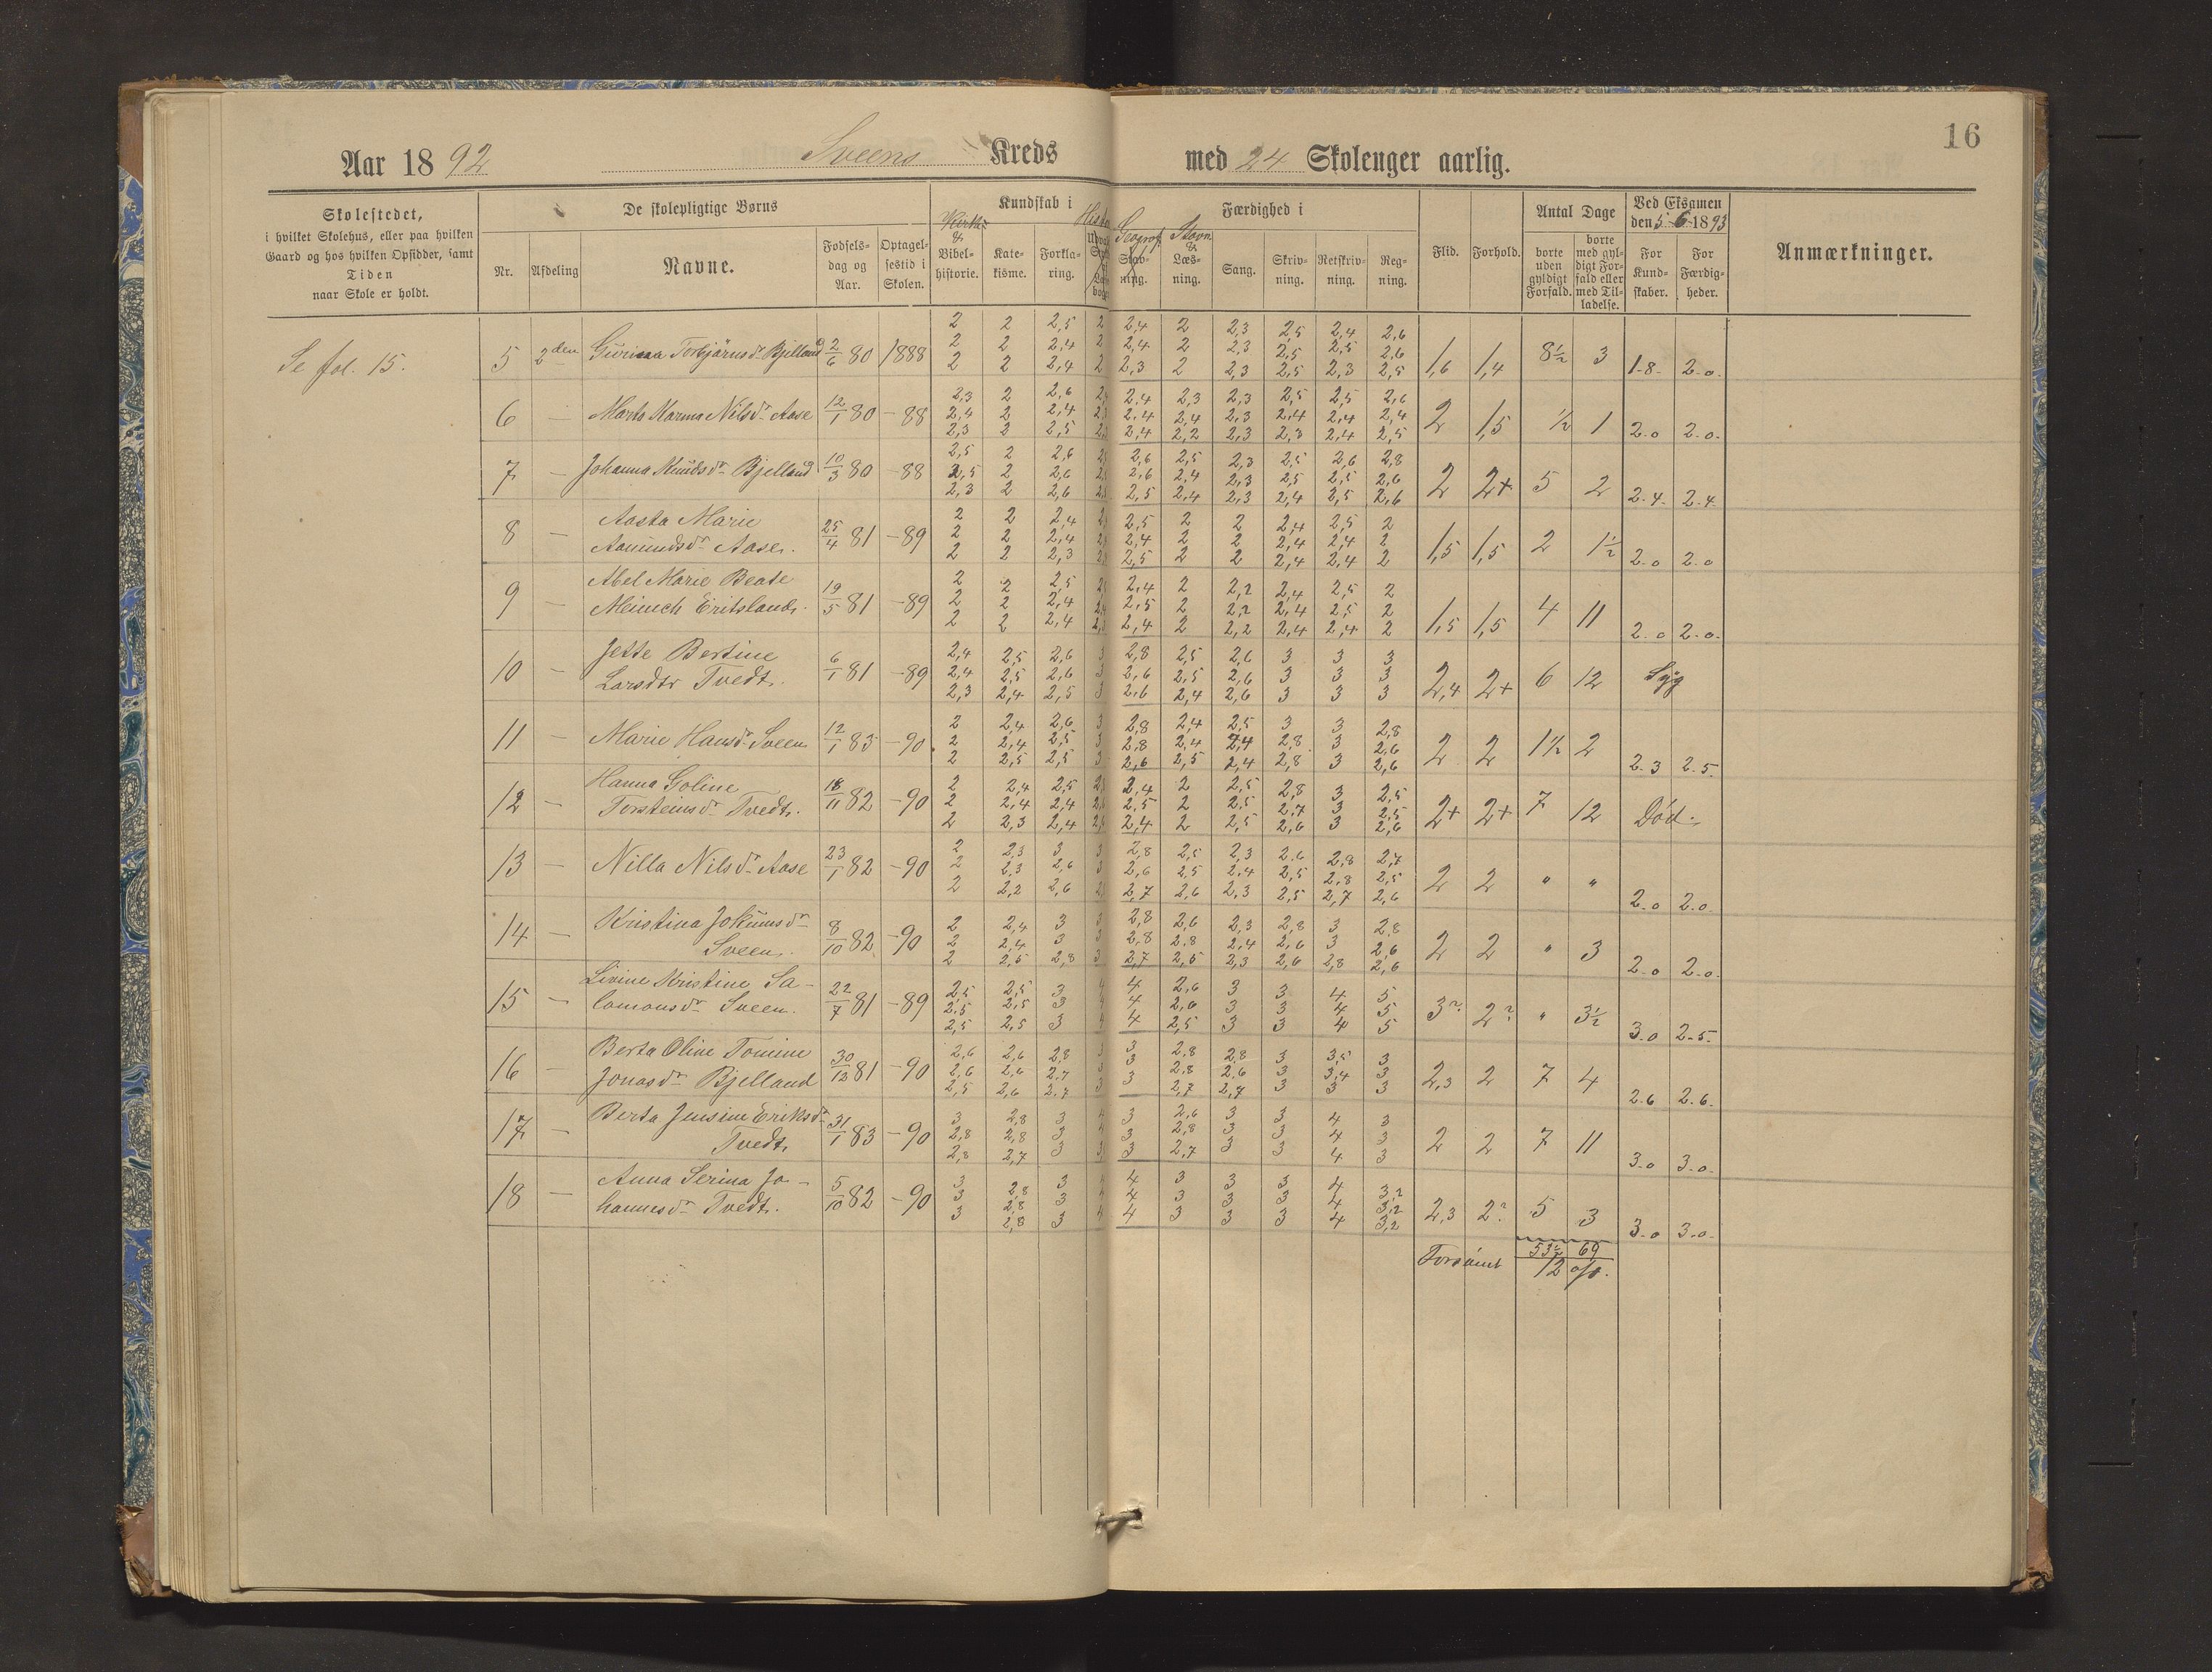 16
Aar 1892 Sveens Kreds med 24 Skolenger aarlig.
Skolestedet, i hvilket Skolehus, eller paa hvilken Gaard og hos hvilken Opsidder, samt Tiden naar Skole er holdt.
De skolepligtige Børns
Nr. Afdeling Navne. Fødselsdag og Aar. Optagelsestid i Skolen.
Kundskab i
Bibelhistorie. Katekisme. Forklaring.
Færdighed i
Geograf. Stavning. Stavn. & Læsning. Sang. Skrivning. Retskrivning. Regning.
Flid. Forhold.
Antal Dage
borte uden gyldigt Forfald. borte med gyldigt Forfald eller med Tilladelse.
Ved Eksamen den 5-6-1893
For Kundskaber. For Færdigheder.
Anmærkninger.
Se fol. 15.
5 2den Torbjörnsdr Bjelland 2/6 80 1888
2 2 2,5 2 2,4 2 2,3 2,5 2,4 2,6
2 2 2,4 2 2,4 2 2,3 2,5 2,5 2,6
2 2 2,4 2 2,3 2 2,3 2,5 2,3 2,5
1,6 1,4 8½ 3 1-8- 2-0-
6 — Marta Karina Nilsdr Aase 12/1 80 - 88
2,3 2 2,6 2,4 2,3 2,3 2,5 2,5 2,6
2,4 2 2,4 2,4 2,4 2,3 2,4 2,4 2,4
2,3 2 2,5 2,4 2,2 2,3 2,3 2,4 2,5
2 1,5 ½ 1 2-0 2-0-
7 — Johanna Knudsdr Bjelland 10/3 80 - 88
2,5 2 2,6 2,6 2,5 2,3 2,5 2,6 2,8
2,5 2 2,6 2,6 2,4 2,3 2,5 2,5 2,6
2,3 2 2,6 2,5 2,4 2,3 2,4 2,5 2,6
2 2+ 5 2 2-4- 2-4-
8 — Aasta Marie
Aamundsdr Aase. 25/4 81 - 89
2 2 2,4 2,5 2 2 2,4 2,5 2
2 2 2,4 2,4 2 2 2,4 2,4 2
2 2 2,3 2,5 2 2 2,4 2,4 2
1,5 1,5 2 1½ 2-0 2-0
9 — Abel Marie Beate
Meinich Eritsland. 19/5 81 - 89
2 2 2,5 2,4 2 2,2 2,4 2,5 2
2 2 2,4 2,5 2 2,2 2,4 2,5 2
2 2 2,4 2,4 2 2,2 2,4 2,4 2
1,5 1,5 4 11 2-0 2-0-
10 — Jette Bertine
Larsdtr Tvedt. 6/1 81 - 89
2,4 2,5 2,6 3 2,8 2,5 2,6 3 3 3
2,4 2,5 2,6 3 2,6 2,5 2,6 3 3 3
2,3 2,4 2,5 3 2,6 2,4 2,6 3 3 3
2,4 2+ 6 12 Syg
11 — Marie Hansdr Sveen 12/1 83 - 90
2 2,4 2,6 3 2,8 2,4 2,5 3 3 2,8
2 2,4 2,5 3 2,8 2,4 2,4 2,8 3 2,6
2 2,5 2,5 3 2,6 2,5 2,4 2,8 3 2,6
2 2 1½ 2 2-3 2-5-
12 — Hanna Goline
Torsteinsdr Tvedt. 18/11 82 - 90
2 2,4 2,5 2,4 2 2,5 2,8 3 2,5
2 2,4 2,4 2,5 2 2,5 2,7 3 2,5
2 2,3 2,4 2,4 2 2,5 2,6 3 2,6
2+ 2+ 7 12 Död.
13 — Nilla Nilsdr Aase 23/1 82 - 90
2 2,3 3 3 2,8 2,5 2,3 2,6 2,8 2,7
2 2,3 2,6 3 2,6 2,5 2,4 2,5 2,8 2,5
2 2,2 2,6 2,7 2,6 2,3 2,5 2,7 2,6
2 2 " " 2-0 2-0-
14 — Kristina Jokumsdr
Sveen. 8/10 82 - 90
2 2,4 3 3 2,8 2,6 2,3 2,8 3 2,8
2 2,4 3 3 2,8 2,8 2,4 2,6 3 2,6
2 2,5 2,8 3 2,7 2,5 2,3 2,6 2,8 2,6
2 2 " 3 2-0 2-0-
15 — Livine Kristine Sa-
lomonsdr Sveen. 22/7 81 - 89
2,5 2,5 3 4 4 2,6 3 3 4 5
2,5 2,5 3 4 4 2,6 3 3 4 5
2,5 2,5 3 4 4 2,5 3 3 4 5
3? 2? " 3½ 3-0 2-5-
16 — Berta Oline Tomine
Jonasdr Bjelland 30/12 81 - 90
2,6 2,6 2,8 3 3 2,8 2,8 3 3,5 3
2,6 2,6 2,7 3 3 2,8 2,6 3 3,4 3
2,5 2,6 2,7 3 3 2,7 2,7 3 3 3
2,3 2 7 4 2-6 2-6-
17 — Berta Jensine Eriksdr
Tvedt. 31/1 83 - 90
3 2,8 3 4 3 2,6 3 3 4 3
2,8 2,8 3 4 3 2,8 3 3 4 3
2,8 2,7 3 3 3 2,7 3 3 4 3
2 2 7 11 3-0 3-0-
18 — Anna Serina Jo-
hannesdr Tvedt. 5/10 82 - 90
3 2,8 3 4 4 3 3 3 4 3,2
3 2,8 3 4 4 3 3 3 4 3,2
3 2,8 3 4 4 3 3 3 4 3,2
2,3 2? 5 3 3-0 3-0-
Forsömt 53½ 69
12 o/o.